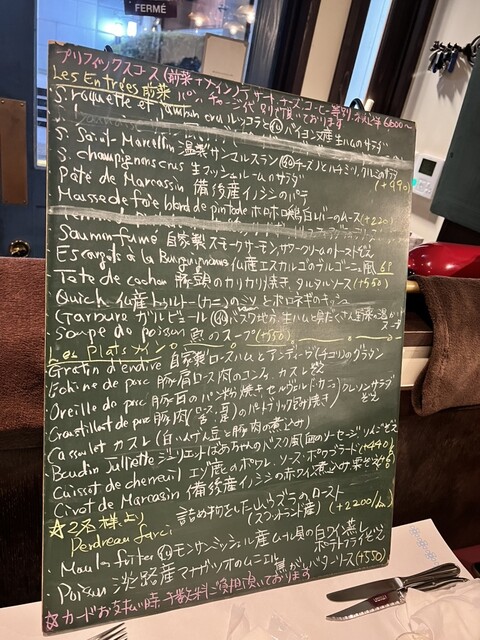 FERMÉ
プリフィックスコース(前菜+メイン+デザート+チーズ+コーヒー
Les Entrées 前菜 パン、チャージ代 別で頂いております
S. roquette et jambon cru ルッコラとバイヨンヌ産生ハムのサラダ
S. Saint-Marcellin 温製サンマルスラン チーズとハチミツ、クルミのサラダ
S. champignons crus 生マッシュルームのサラダ (+990)
Pâté de Marcassin 備後産イノシシのパテ
Mousse de foie blond de pintade ホロホロ鶏白レバーのムース(+220)
Saumon fumé 自家製スモークサーモン、サワークリームのトースト
Escargots à la Bourguignonne 仏産エスカルゴのブルゴーニュ風 6P
Tête de cochon 豚頭のカリカリ焼き、タルタルソース(+550)
Quiche 仏産トゥルトー(カニ)のミソとポロネギのキッシュ
Garbure ガルビュール バスク地方、生ハムと鴨とたくさん野菜の温かいスープ
Soupe de poisson 魚のスープ(+550)
Les Plats メイン
Gratin d'endive 自家製ロースハムとアンディーヴ(チコリ)のグラタン
Echine de porc 豚肩ロース肉のコンフィ、カスレ
Oreille de porc 豚耳のパン粉焼き
Croustillant de porc 豚肉(舌、耳)のパートブリック包み焼き クレソンサラダ
Cassoulet カスレ(白いんげん豆と豚肉の煮込み)
Boudin Juliette ジュリエットばあちゃんのバスク風血のソーセージ、りんご
Cuissot de chevreuil エゾ鹿のポワレ、ソース・ポワヴラード(+440)
Civet de Marcassin 備後産イノシシの赤ワイン煮込み、栗
☆2名様より 詰め物をした山ウズラのロースト
Perdreau farci (スコットランド産) (+2200/1人)
Moules frites モンサンミッシェル産ムール貝の白ワイン蒸し ポテトフライ
Poisson 淡路産マナガツオのムニエル 焦がしバターソース(+550)
☆カードお支払い時、手数料ご負担頂いております